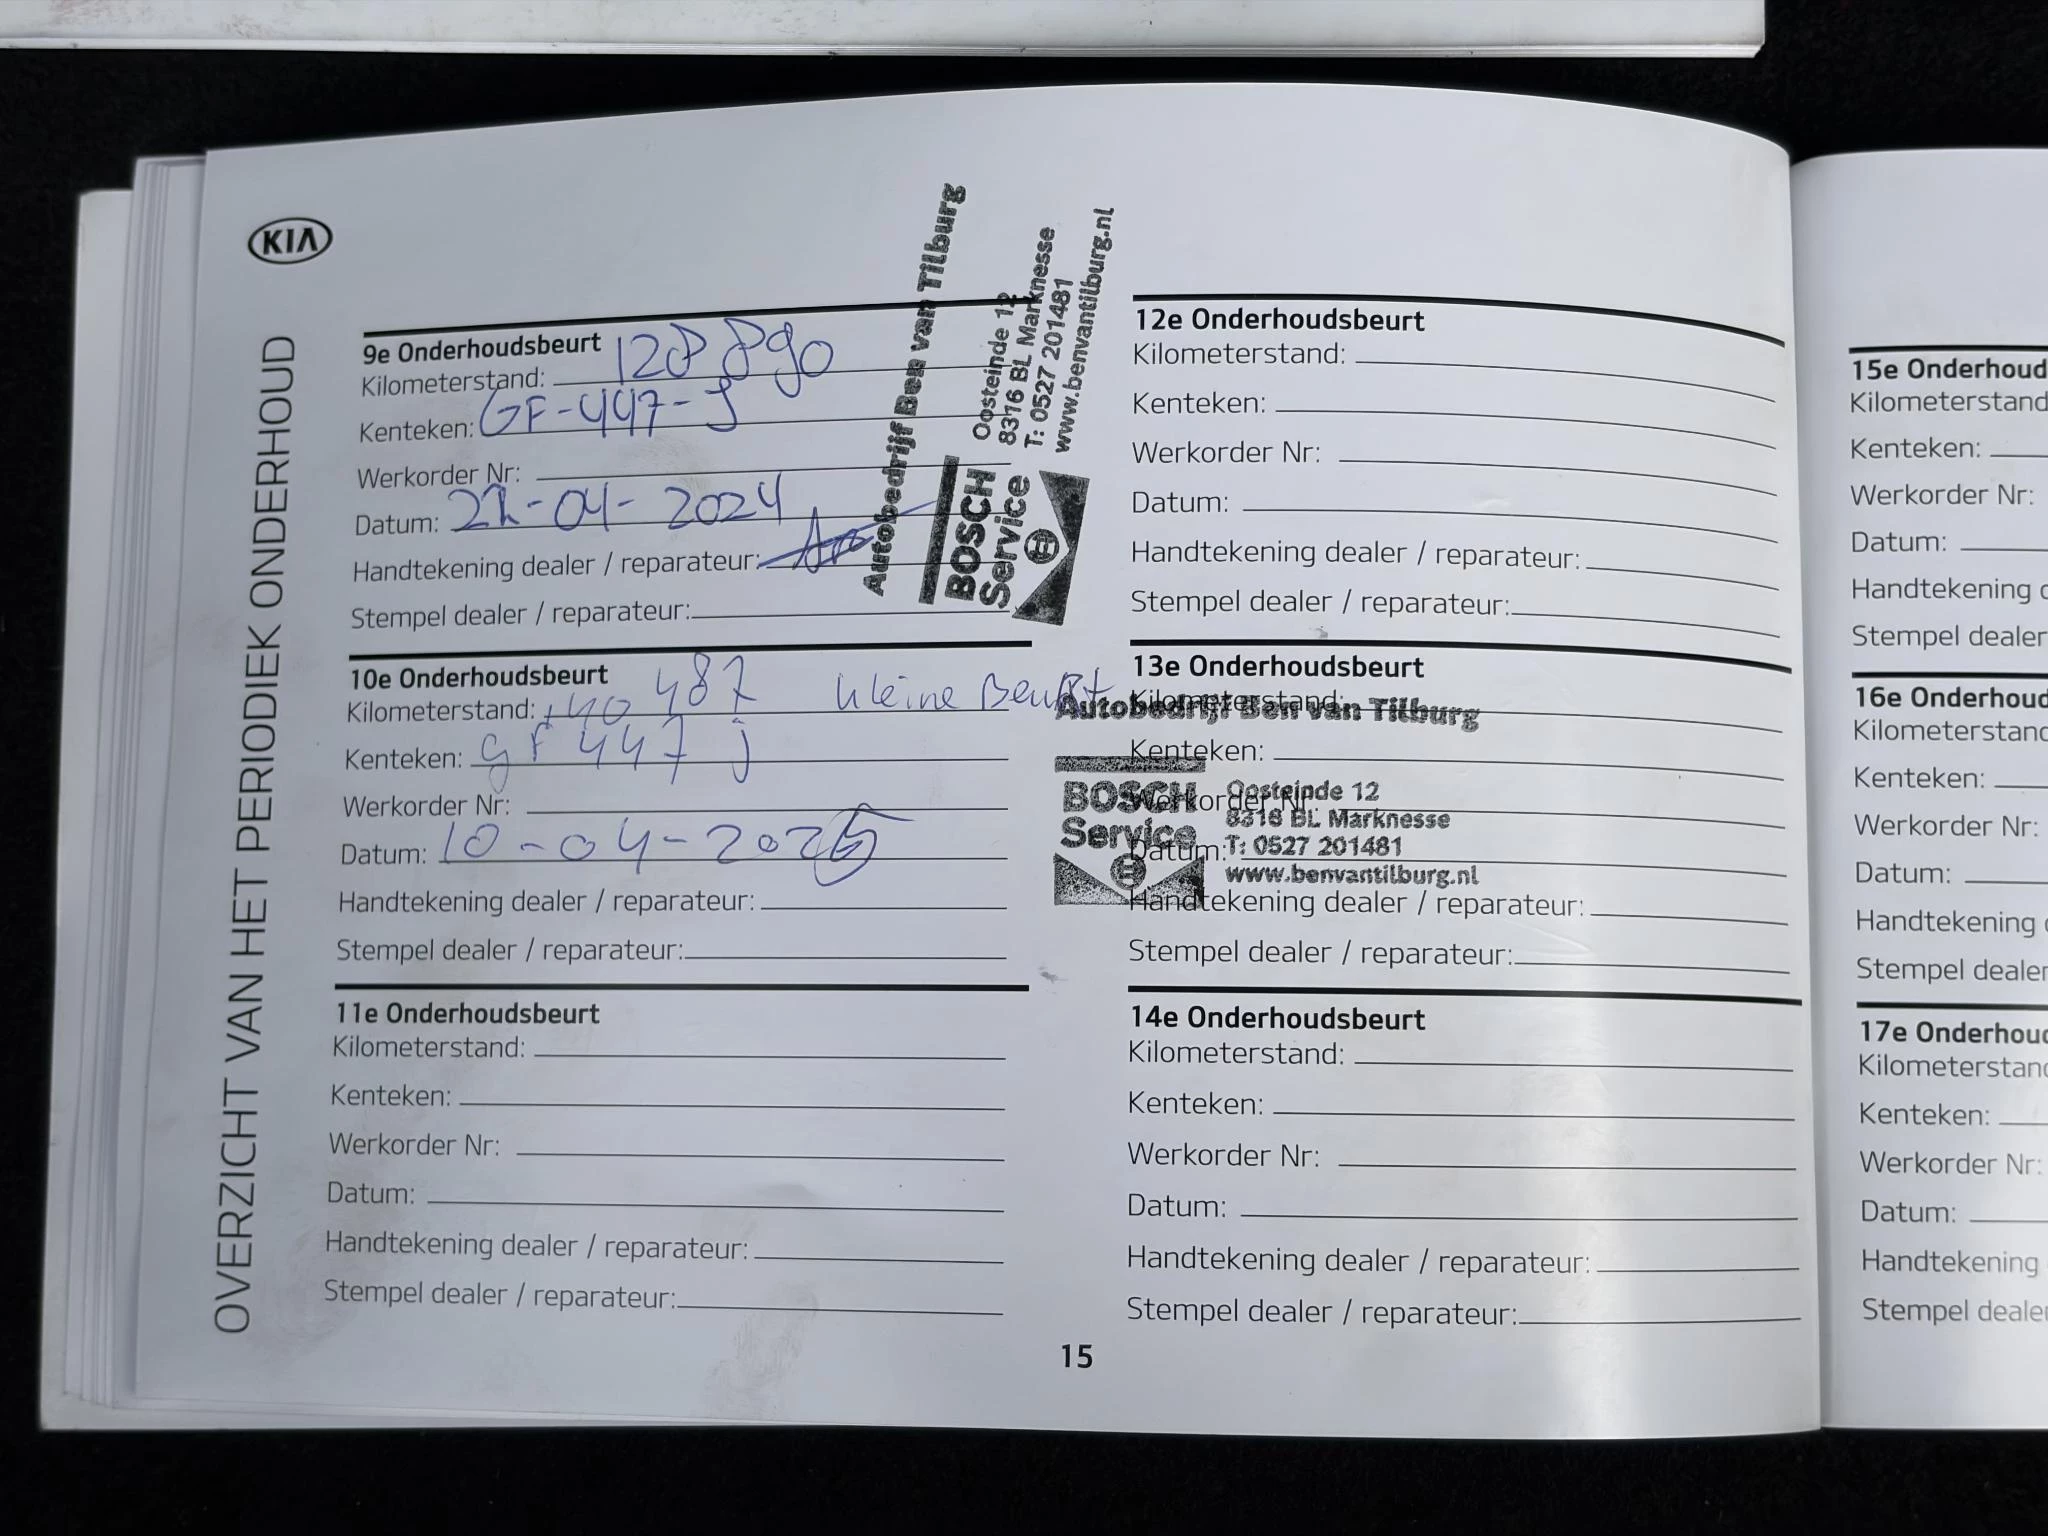 KIA
OVERZICHT VAN HET PERIODIEK ONDERHOUD
9e Onderhoudsbeurt
Kilometerstand: 128 890
Kenteken: GF-447-J
Werkorder Nr:
Datum: 22-04-2024
Handtekening dealer / reparateur:
Stempel dealer / reparateur:
Autobedrijf Ben van Tilburg
BOSCH
Service
Oosteinde 12
8316 BL Marknesse
T: 0527 201481
www.benvantilburg.nl
10e Onderhoudsbeurt
Kilometerstand: 140 487 kleine Beurt
Kenteken: gf 447 j
Werkorder Nr:
Datum: 10-04-2025
Handtekening dealer / reparateur:
Stempel dealer / reparateur:
11e Onderhoudsbeurt
Kilometerstand:
Kenteken:
Werkorder Nr:
Datum:
Handtekening dealer / reparateur:
Stempel dealer / reparateur:
12e Onderhoudsbeurt
Kilometerstand:
Kenteken:
Werkorder Nr:
Datum:
Handtekening dealer / reparateur:
Stempel dealer / reparateur:
13e Onderhoudsbeurt
Kilometerstand:
Kenteken:
Werkorder Nr:
Datum:
Handtekening dealer / reparateur:
Stempel dealer / reparateur:
Autobedrijf Ben van Tilburg
BOSCH
Service
Oosteinde 12
8316 BL Marknesse
T: 0527 201481
www.benvantilburg.nl
14e Onderhoudsbeurt
Kilometerstand:
Kenteken:
Werkorder Nr:
Datum:
Handtekening dealer / reparateur:
Stempel dealer / reparateur:
15
15e Onderhoud
Kilometerstand
Kenteken:
Werkorder Nr:
Datum:
Handtekening
Stempel dealer
16e Onderhoud
Kilometerstand
Kenteken:
Werkorder Nr:
Datum:
Handtekening
Stempel dealer
17e Onderhoud
Kilometerstand
Kenteken:
Werkorder Nr:
Datum:
Handtekening
Stempel dealer